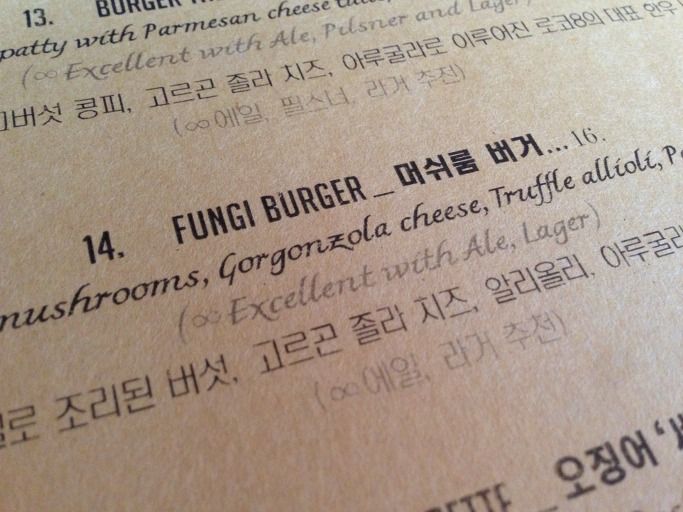 13. BURGER
patty with Parmesan cheese
(∞ Excellent with Ale, Pilsner and Lager)
버섯 콩피, 고르곤 졸라 치즈, 아루굴라로 이루어진 로코8의 대표 한우
(∞에일, 필스너, 라거 추천)
14. FUNGI BURGER _ 머쉬룸 버거...16.
mushrooms, Gorgonzola cheese, Truffle allioli,
(∞ Excellent with Ale, Lager)
조리된 버섯, 고르곤 졸라 치즈, 알리올리, 아루굴라
(∞에일, 라거 추천)
_ 오징어 ‘